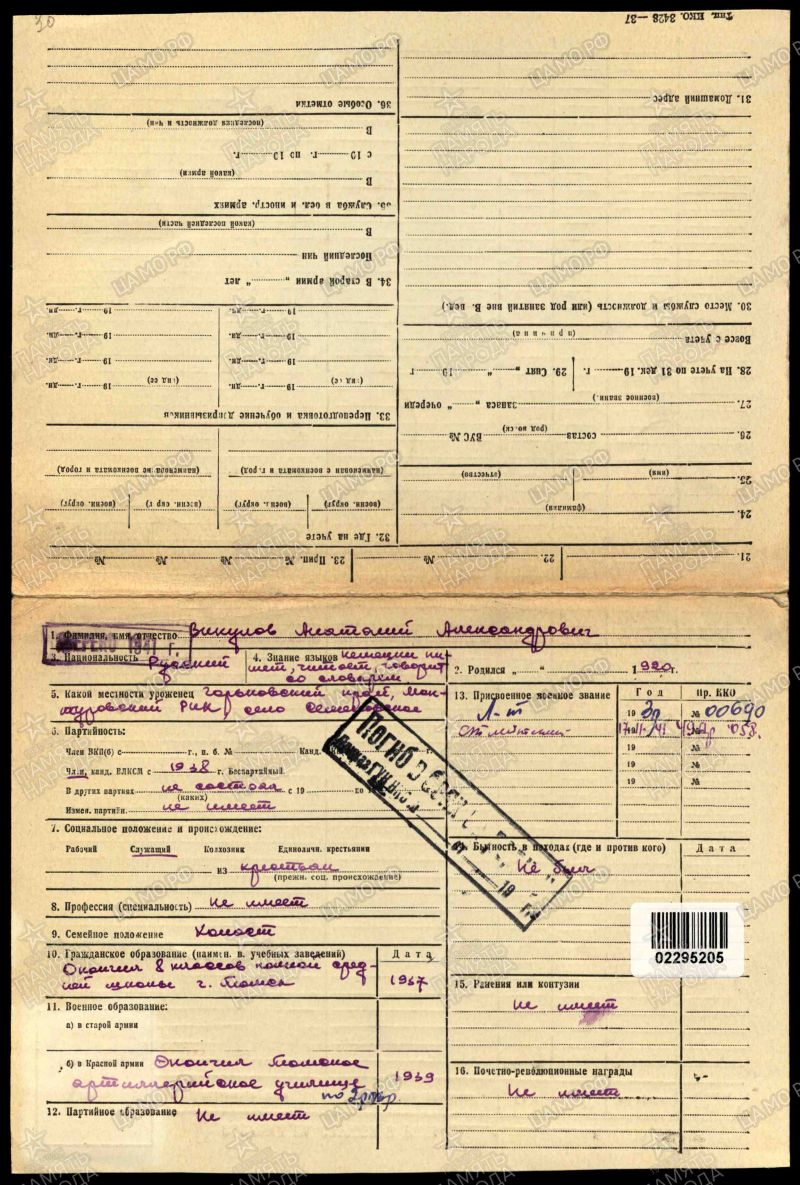 20
Тип. ККО. 3428—37
36. Особые отметки
(последняя должность и чин)
В
с 19 г. по 19 г.
(какой армии)
В
35. Служба в бел. и иностр. армиях
(какой последней части)
В
Последний чин
34. В старой армии „ “ лет
19 г. дн. 19 г. дн.
19 г. дн. 19 г. дн.
19 г. дн. 19 г. дн.
19 г. дн. 19 г. дн.
33. Переподготовка и обучение допризывников
(наименован. военкомата и г. род) (наименование военкомата и город)
(воен. округ) (воен. округ) (воен. округ) (воен. округ)
32. Где на учете
31. Домашний адрес
30. Место службы и должность (или род занятий вне В. вед.)
(причина)
Вовсе с учета
28. На учете по 31 дек. 19 г. 29. Снят „ “ 19 г
(военное звание)
27. запаса „ “ очереди
(род во ск)
26. состав ВУС №
(имя) (отчество)
25.
(фамилия)
24.
21. 22. № 23. Прип. № № № №
1. Фамилия, имя, отчество Викулов Анатолий Александрович
1941 г.
3. Национальность Русский
4. Знание языков немецкий пишет, читает, говорит
со словарем
2. Родился „ “ 1920 г.
5. Какой местности уроженец Горьковский край,
РИК, село
6. Партийность:
Член ВКП(б) с г., п. б. № Канд.
Чл.и, канд. ВЛКСМ с 1938 г. Беспартийный
В других партиях не состоял с 19 по
(каких)
Измен. партийн. не имеет
7. Социальное положение и происхождение:
Рабочий Служащий Колхозник Единоличн. крестьянин
из крестьян
(прежн. соц. происхождение)
8. Профессия (специальность) не имеет
9. Семейное положение Холост
10. Гражданское образование (наимен. в. учебных заведений) Дата
Окончил 8 классов сред-
ней школы г. Томск 1937
11. Военное образование:
а) в старой армии
б) в Красной армии Окончил Томское
артиллерийское училище 1939
по 2 разр.
12. Партийное образование Не имеет
13. Присвоенное военное звание Год Пр. ККО
Л-т 19 39 № 00690
19 41 № 058.
19 №
19 №
19 №
Погиб в
19 г.
Бытность в походах (где и против кого) Дата
Не был
02295205
15. Ранения или контузии
Не имеет
16. Почетно-революционные награды
Не имеет
ПАМЯТЬ НАРОДА
ЦАМО.РФ